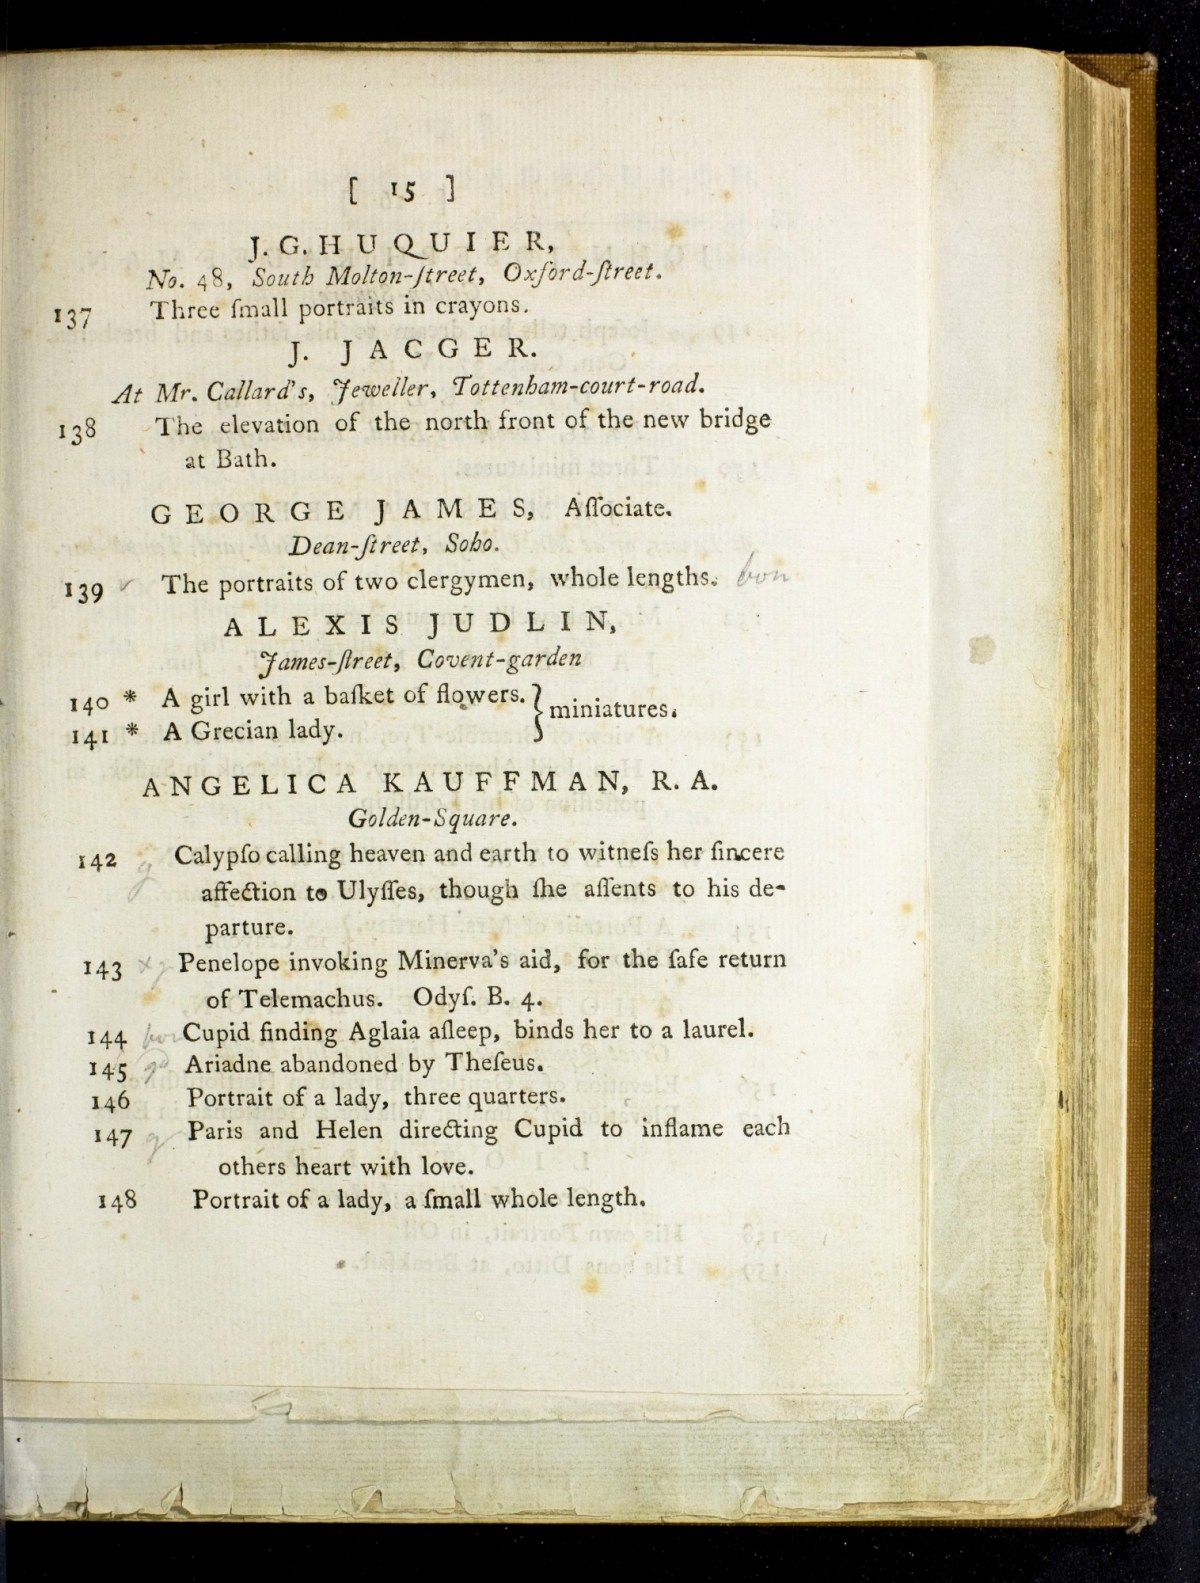 [ 15 ]
J. G. HUQUIER,
No. 48, South Molton-ſtreet, Oxford-ſtreet.
137 Three ſmall portraits in crayons.
J. JACGER.
At Mr. Callard's, Jeweller, Tottenham-court-road.
138 The elevation of the north front of the new bridge
at Bath.
GEORGE JAMES, Aſſociate.
Dean-ſtreet, Soho.
139 The portraits of two clergymen, whole lengths. bon
ALEXIS JUDLIN,
James-ſtreet, Covent-garden
140 * A girl with a baſket of flowers. } miniatures.
141 * A Grecian lady.
ANGELICA KAUFFMAN, R. A.
Golden-Square.
142 g Calypſo calling heaven and earth to witneſs her ſincere
affection to Ulyſſes, though ſhe aſſents to his de-
parture.
143 Penelope invoking Minerva's aid, for the ſafe return
of Telemachus. Odyſ. B. 4.
144 bon Cupid finding Aglaia aſleep, binds her to a laurel.
145 Ariadne abandoned by Theſeus.
146 Portrait of a lady, three quarters.
147 g Paris and Helen directing Cupid to inflame each
others heart with love.
148 Portrait of a lady, a ſmall whole length.